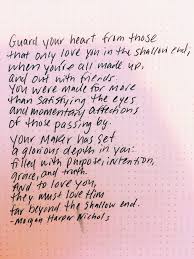 Guard your heart from those
that only love you in the shallow end,
when you're all made up,
and out with friends.
You were made for more
than satisfying the eyes
and momentary affections
of those passing by.
Your Maker has set
a glorious depth in you:
filled with purpose, intention,
grace, and truth.
And to love you,
they must love Him
far beyond the shallow end.
-Morgan Harper Nichols